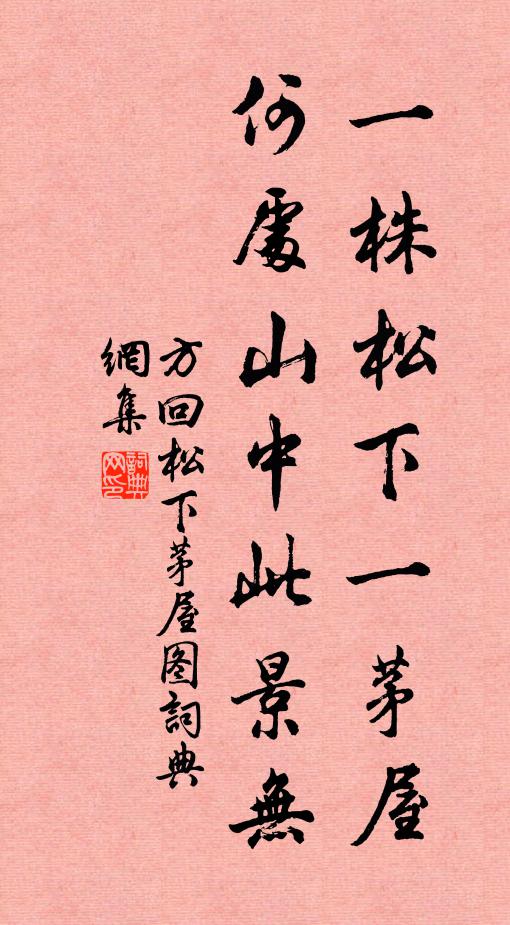 一株松下一茅屋
何處山中此景無
方回松下茅屋图詞典
網集
詞典网印